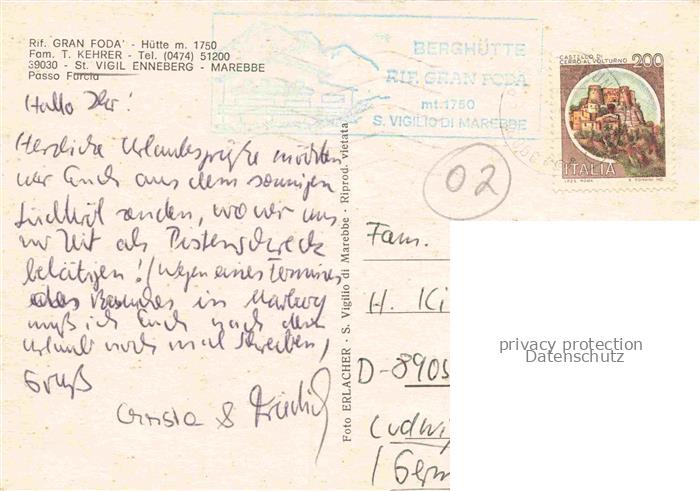 Rif. GRAN FODA' - Hütte m. 1750
Fam. T. KEHRER - Tel. (0474) 51200
39030 - St. VIGIL ENNEBERG - MAREBBE
Passo Furcia
BERGHÜTTE
RIF. GRAN FODÀ
mt. 1750
S. VIGILIO DI MAREBBE
CASTELLO DI
CERRO AL VOLTURNO
200
ITALIA
Hallo Ihr!
Herzliche Urlaubsgrüße möchten
wir Euch aus dem sonnigen
Südtirol senden, wo wir uns
zur Zeit als Pistenschreck
betätigen! (Wegen eines Termines
des Besuches in Marburg
muß ich Euch nach dem
Urlaub noch mal schreiben)
Gruß
Christa &
Foto ERLACHER - S. Vigilio di Marebbe - Riprod. vietata
02
Fam.
H. Ki
D-8905
Ludwig
/Germ
privacy protection
Datenschutz